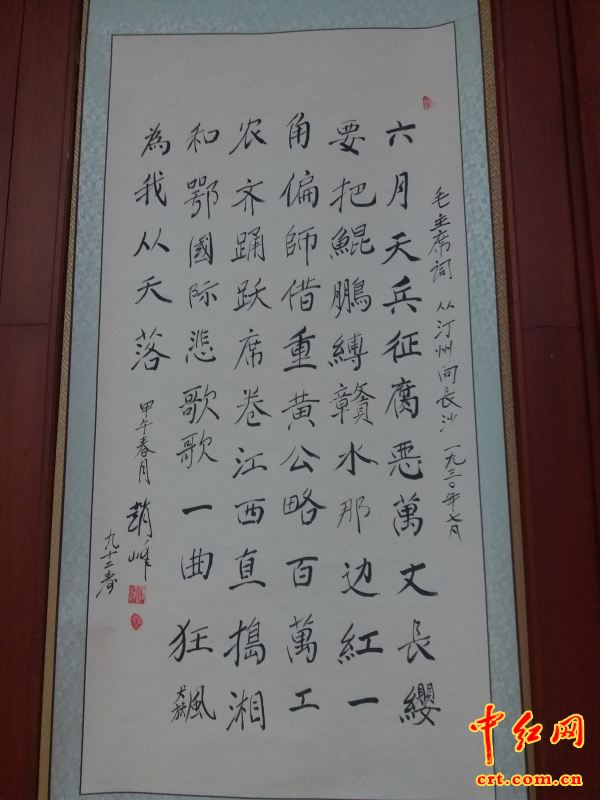 毛主席词 从汀州向長沙 一九三〇年七月
六月天兵征腐恶萬丈長纓
要把鯤鵬縛贛水那边紅一
角偏師借重黄公略百萬工
农齐踊跃席卷江西直搗湘
和鄂國际悲歌歌一曲狂飆
為我从天落
甲午春月 趙峰
九十二
中红网
crt.com.cn